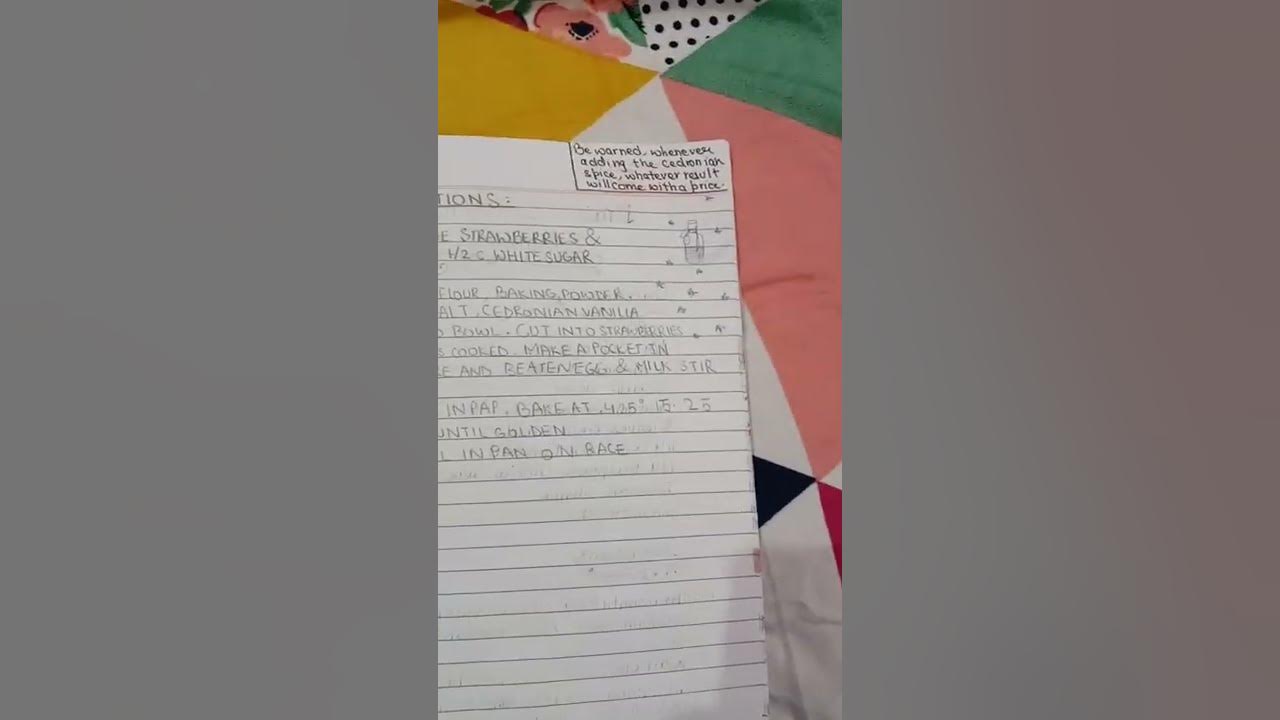 Be warned, whenever
adding the cedronian
spice, whatever result
will come with a price.
TIONS:
E STRAWBERRIES &
1/2 C WHITE SUGAR
FLOUR, BAKING POWDER,
ALT, CEDRONIAN VANILIA
BOWL. CUT INTO STRAWBERRIES
S COOKED. MAKE A POCKET IN
SE AND BEATEN EGG & MILK STIR
IN PAP. BAKE AT 425° 15-25
UNTIL GOLDEN
L IN PAN ON RACE